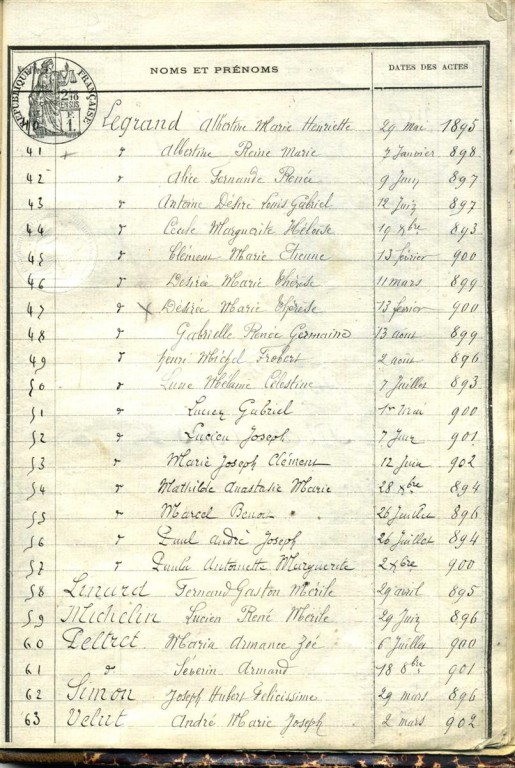 NOMS ET PRÉNOMS DATES DES ACTES
RÉPUBLIQUE FRANÇAISE
40 Legrand Albertine Marie Henriette 29 mai 1895
41 + d° Albertine Reine Marie 7 Janvier 898.
42 d° Alice Fernande Renée 9 Juin 897
43 d° Antoine Désiré Louis Gabriel 12 Juin 897
44 d° Cécile Marguerite Héloïse 19 xbre 893
45 d° Clément Marie Etienne 13 février 900
46 d° Désirée Marie Thérèse 11 mars 899
47 d° X Désirée Marie Thérèse 13 février 900
48 d° Gabrielle Renée Germaine 13 août 899
49 d° Henri Michel 2 août 896
50 d° Mélanie Célestine 7 Juillet 893
51 d° Lucien Gabriel 1er Mai 900
52 d° Lucien Joseph 7 Juin 901.
53 d° Marie Joseph Clément 12 Juin 902
54 d° Mathilde Anastasie Marie 28 xbre 894
55 d° Marcel Benoit 26 Juillet 896
56 d° Paul André Joseph 26 Juillet 894
57 d° Paula Antoinette Marguerite 2 xbre 900
58 Linard Fernand Gaston Mérile 29 avril 895
59 Michelin Lucien René Mérile 29 Juin 896
60 Peltret Maria Armance Zoé 6 Juillet 900
61 d° Séverin Armand 18 8bre 901
62 Simon Joseph Hubert Félicissime 29 mars 896
63 Velut André Marie Joseph 2 mars 902